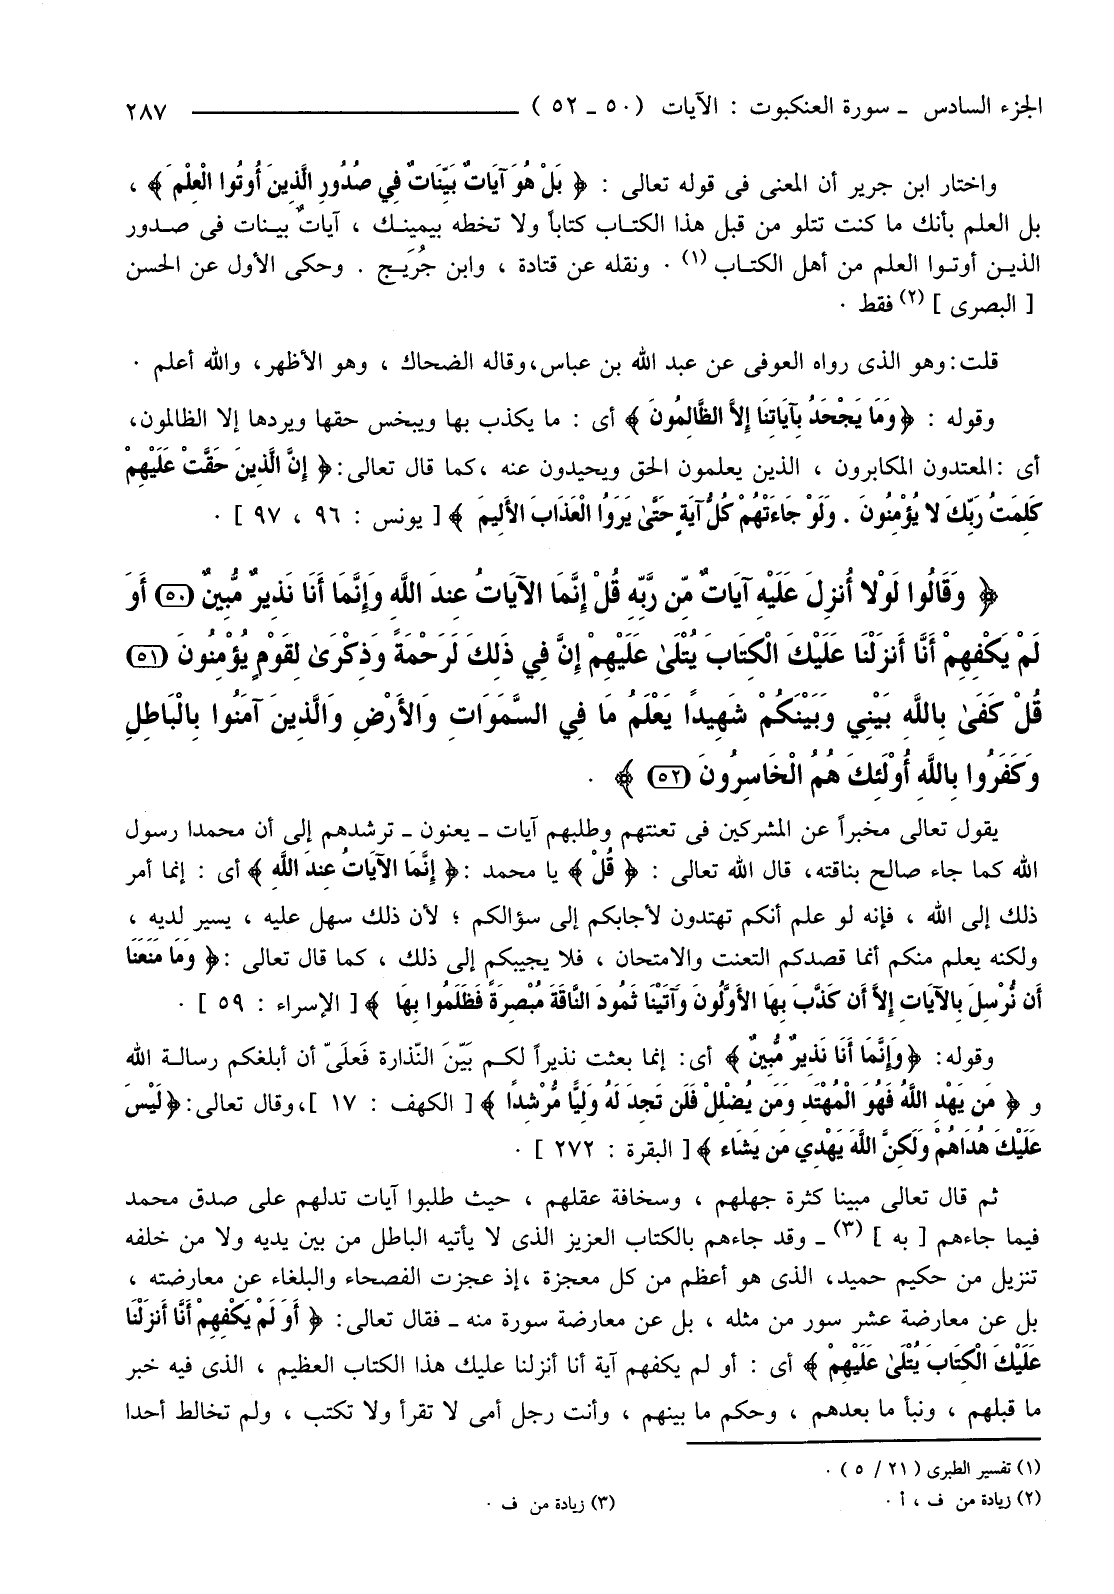 الجزء السادس ـ سورة العنكبوت : الآيات ( ٥٠ ـ ٥٢ ) ـــــــــــــــــ ٢٨٧
واختار ابن جرير أن المعنى فى قوله تعالى : ﴿ بَلْ هُوَ آيَاتٌ بَيِّنَاتٌ فِي صُدُورِ الَّذِينَ أُوتُوا الْعِلْمَ ﴾ ،
بل العلم بأنك ما كنت تتلو من قبل هذا الكتاب كتاباً ولا تخطه بيمينك ، آياتٌ بينات فى صدور
الذين أوتوا العلم من أهل الكتاب (١) . ونقله عن قتادة ، وابن جُرَيج . وحكى الأول عن الحسن
[ البصرى ] (٢) فقط .
قلت: وهو الذى رواه العوفى عن عبد الله بن عباس، وقاله الضحاك ، وهو الأظهر، والله أعلم .
وقوله : ﴿ وَمَا يَجْحَدُ بِآيَاتِنَا إِلاَّ الظَّالِمُونَ ﴾ أى : ما يكذب بها ويبخس حقها ويردها إلا الظالمون،
أى : المعتدون المكابرون ، الذين يعلمون الحق ويحيدون عنه ، كما قال تعالى: ﴿ إِنَّ الَّذِينَ حَقَّتْ عَلَيْهِمْ
كَلِمَتُ رَبِّكَ لا يُؤْمِنُونَ . وَلَوْ جَاءَتْهُمْ كُلُّ آيَةٍ حَتَّىٰ يَرَوُا الْعَذَابَ الأَلِيمَ ﴾ [ يونس : ٩٦ ، ٩٧ ] .
﴿ وَقَالُوا لَوْلا أُنزِلَ عَلَيْهِ آيَاتٌ مِّن رَّبِّهِ قُلْ إِنَّمَا الآيَاتُ عِندَ اللَّهِ وَإِنَّمَا أَنَا نَذِيرٌ مُّبِينٌ (٥٠) أَوَ
لَمْ يَكْفِهِمْ أَنَّا أَنزَلْنَا عَلَيْكَ الْكِتَابَ يُتْلَىٰ عَلَيْهِمْ إِنَّ فِي ذَلِكَ لَرَحْمَةً وَذِكْرَىٰ لِقَوْمٍ يُؤْمِنُونَ (٥١)
قُلْ كَفَىٰ بِاللَّهِ بَيْنِي وَبَيْنَكُمْ شَهِيدًا يَعْلَمُ مَا فِي السَّمَوَاتِ وَالأَرْضِ وَالَّذِينَ آمَنُوا بِالْبَاطِلِ
وَكَفَرُوا بِاللَّهِ أُوْلَئِكَ هُمُ الْخَاسِرُونَ (٥٢) ﴾ .
يقول تعالى مخبراً عن المشركين فى تعنتهم وطلبهم آيات ـ يعنون ـ ترشدهم إلى أن محمدا رسول
الله كما جاء صالح بناقته، قال الله تعالى : ﴿ قُلْ ﴾ يا محمد : ﴿ إِنَّمَا الآيَاتُ عِندَ اللَّهِ ﴾ أى : إنما أمر
ذلك إلى الله ، فإنه لو علم أنكم تهتدون لأجابكم إلى سؤالكم ؛ لأن ذلك سهل عليه ، يسير لديه ،
ولكنه يعلم منكم أنما قصدكم التعنت والامتحان ، فلا يجيبكم إلى ذلك ، كما قال تعالى : ﴿ وَمَا مَنَعَنَا
أَن نُّرْسِلَ بِالآيَاتِ إِلاَّ أَن كَذَّبَ بِهَا الأَوَّلُونَ وَآتَيْنَا ثَمُودَ النَّاقَةَ مُبْصِرَةً فَظَلَمُوا بِهَا ﴾ [ الإسراء : ٥٩ ] .
وقوله: ﴿ وَإِنَّمَا أَنَا نَذِيرٌ مُّبِينٌ ﴾ أى: إنما بعثت نذيراً لكم بَيّنَ النّذارة فَعلَىّ أن أبلغكم رسالة الله
و ﴿ مَن يَهْدِ اللَّهُ فَهُوَ الْمُهْتَدِ وَمَن يُضْلِلْ فَلَن تَجِدَ لَهُ وَلِيًّا مُّرْشِدًا ﴾ [ الكهف : ١٧ ]، وقال تعالى: ﴿ لَيْسَ
عَلَيْكَ هُدَاهُمْ وَلَكِنَّ اللَّهَ يَهْدِي مَن يَشَاء ﴾ [ البقرة : ٢٧٢ ] .
ثم قال تعالى مبينا كثرة جهلهم ، وسخافة عقلهم ، حيث طلبوا آيات تدلهم على صدق محمد
فيما جاءهم [ به ] (٣) ـ وقد جاءهم بالكتاب العزيز الذى لا يأتيه الباطل من بين يديه ولا من خلفه
تنزيل من حكيم حميد، الذى هو أعظم من كل معجزة ، إذ عجزت الفصحاء والبلغاء عن معارضته ،
بل عن معارضة عشر سور من مثله ، بل عن معارضة سورة منه ـ فقال تعالى: ﴿ أَوَ لَمْ يَكْفِهِمْ أَنَّا أَنزَلْنَا
عَلَيْكَ الْكِتَابَ يُتْلَىٰ عَلَيْهِمْ ﴾ أى : أو لم يكفهم آية أنا أنزلنا عليك هذا الكتاب العظيم ، الذى فيه خبر
ما قبلهم ، ونبأ ما بعدهم ، وحكم ما بينهم ، وأنت رجل أمى لا تقرأ ولا تكتب ، ولم تخالط أحدا
(١) تفسير الطبرى ( ٢١ / ٥ ) .
(٢) زيادة من ف ، أ . (٣) زيادة من ف .